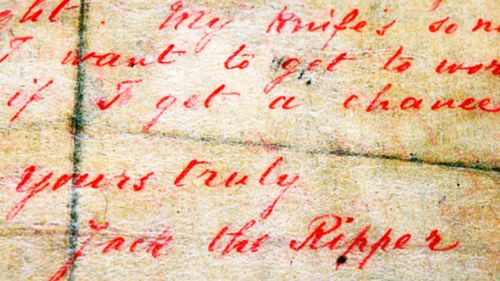 ght. My Knife's so n
I want to get to wor
if I get a chance
Yours truly
Jack the Ripper